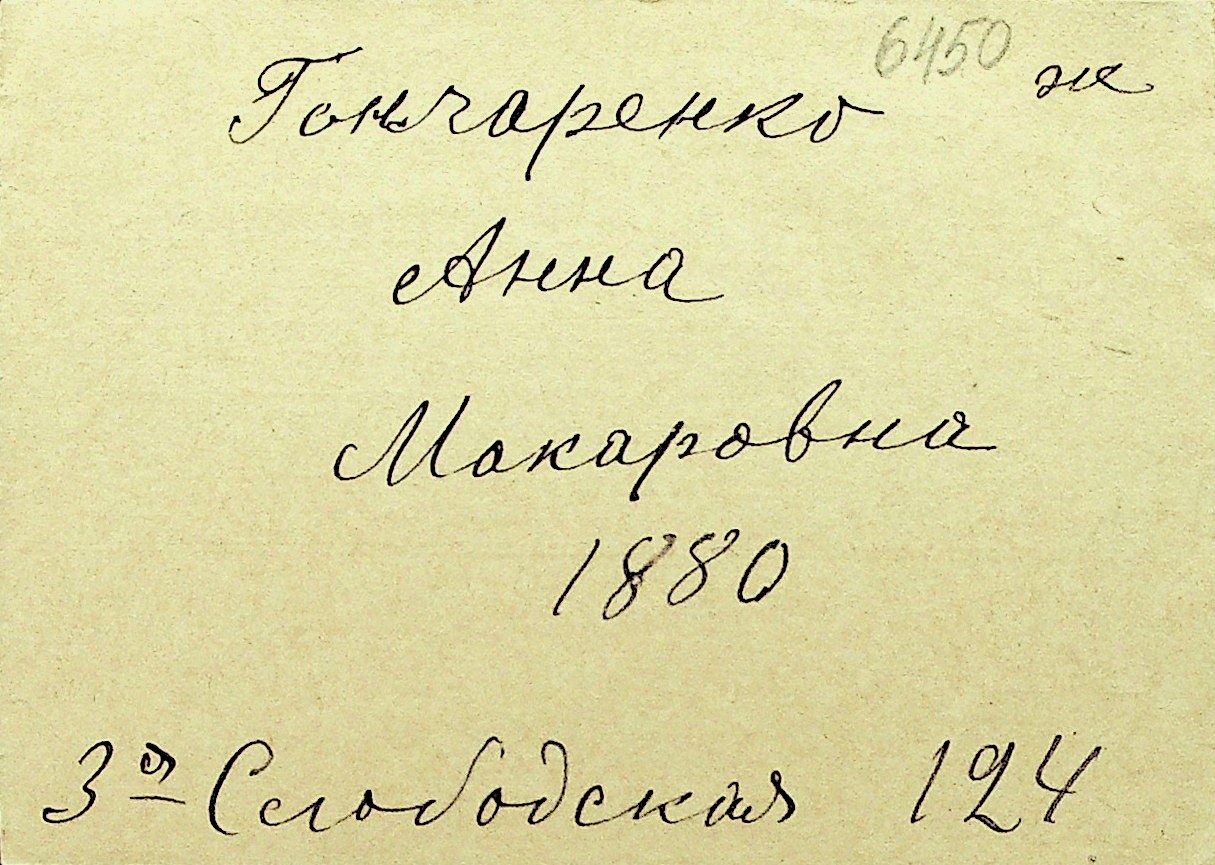 6450 ж
Гончаренко
Анна
Макаровна
1880
3я Слободская 124